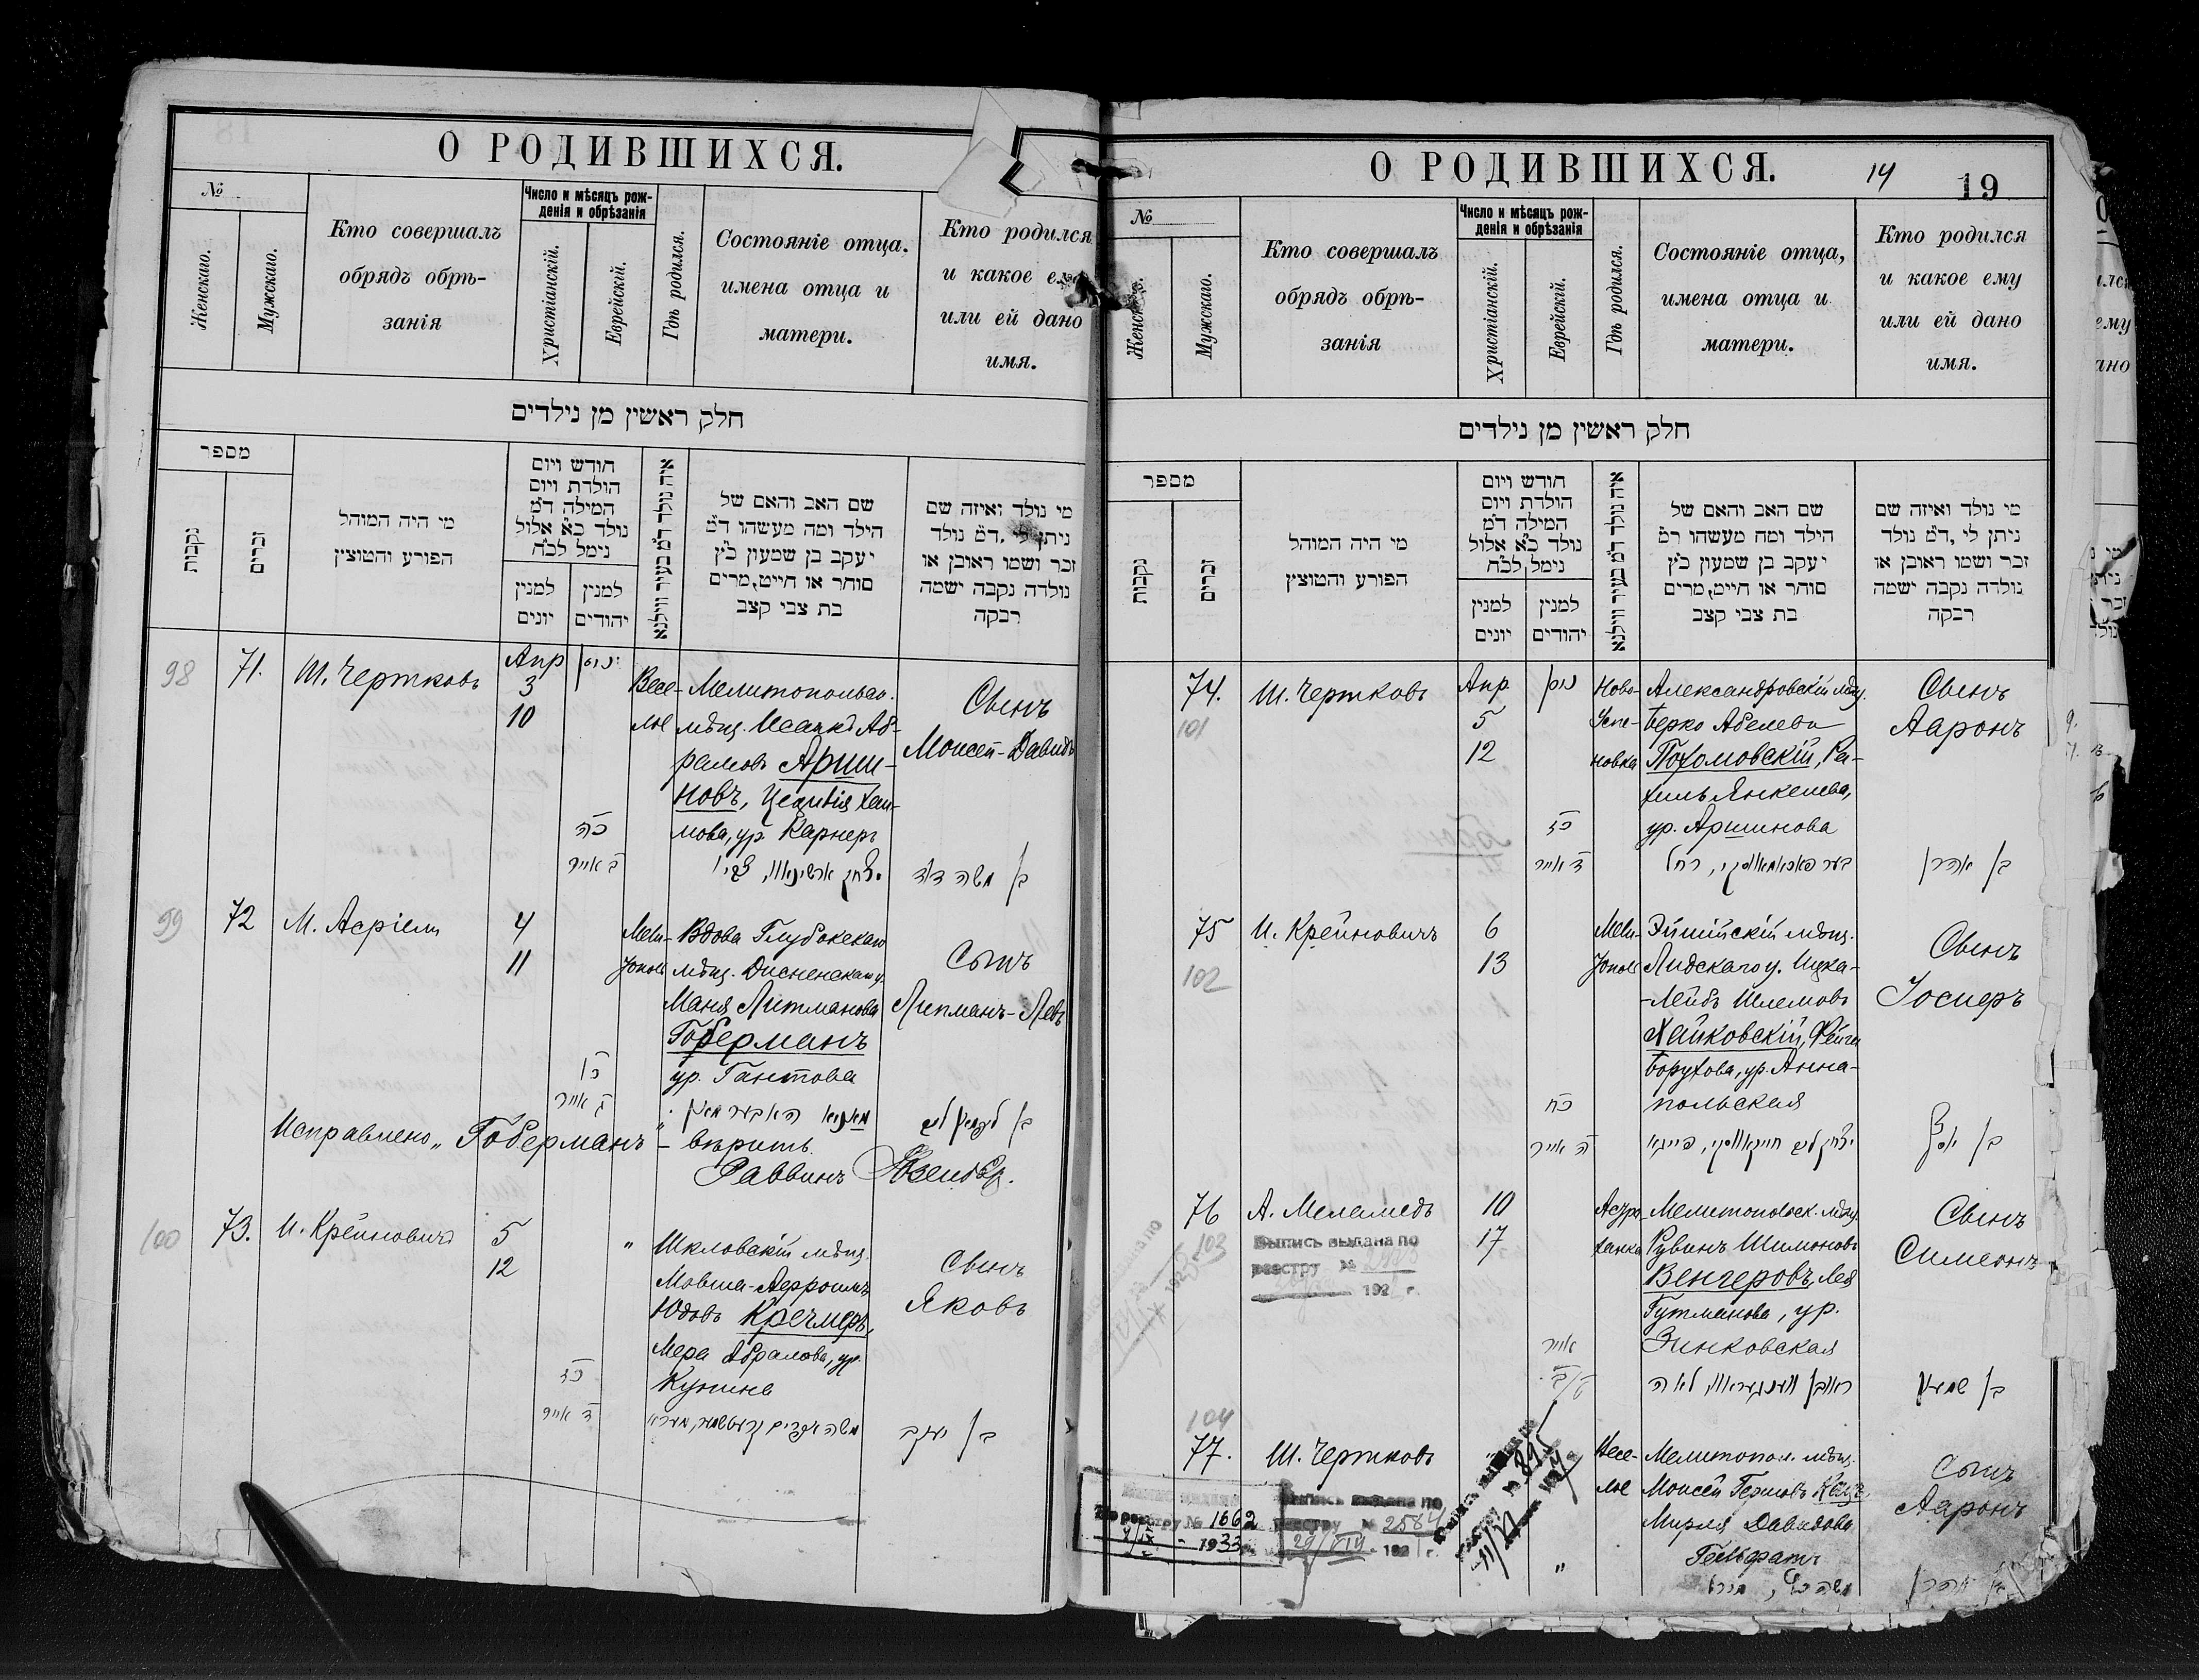 О РОДИВШИХСЯ.
№
Женскаго.
Мужскаго.
Кто совершалъ
обрядъ обрѣ-
занія
Число и мѣсяцъ рож-
денія и обрѣзанія
Христіанскій.
Еврейскій.
Гдѣ родился.
Состояніе отца,
имена отца и
матери.
Кто родился
и какое ему
или ей дано
имя.
חלק ראשין מן נילדים
מספר
נקבות
זכרים
מי היה המוהל
הפורע והמוצץ
חודש ויום
הולדת ויום
המילה ד״מ
נולד כ״א אלול
נימל לכ״ח
למנין
יונים
למנין
יהודים
איה נולד ד״מ בעיר ווילנא
שם האב והאם של
הילד ומה מעשהו ד״מ
יעקב בן שמעון כ״ץ
סוחר או חייט, מרים
בת צבי קצב
מי נולד ואיזה שם
ניתן לי, ד״מ נולד
זכר ושמו ראובן או
נולדה נקבה ישמה
רבקה
98
71.
Ш. Чертковъ
Апр
3
10
ניסן
כה
ב אייר
Весе-
лое
Мелитопольск.
мѣщ. Исаакъ Аб-
рамовъ Арши-
новъ,
мова, ур. Карнеръ
Сынъ
Моисей-Давидъ
בן משה דוד
99
72
М. Асріелъ
4
11
כו
ג אייר
Мели-
тополь
Вдова Глубокскаго
мѣщ. Дисненскаго у.
Маня Литманова
Гоберманъ
ур. Гантова
Сынъ
Липманъ-Левъ
Исправлено „Гоберманъ" – вѣрить.
Раввинъ
100
73.
И. Крейновичъ
5
12
כז
ד אייר
"
Шкловскій мѣщ.
Мовша-
Юдовъ Кречмеръ,
Мера Абрамова, ур.
Кунина
Сынъ
Яковъ
בן יעקב
О РОДИВШИХСЯ.
14
19
№
Женскаго.
Мужскаго.
Кто совершалъ
обрядъ обрѣ-
занія
Число и мѣсяцъ рож-
денія и обрѣзанія
Христіанскій.
Еврейскій.
Гдѣ родился.
Состояніе отца,
имена отца и
матери.
Кто родился
и какое ему
или ей дано
имя.
חלק ראשין מן נילדים
מספר
נקבות
זכרים
מי היה המוהל
הפורע והמוצץ
חודש ויום
הולדת ויום
המילה ד״מ
נולד כ״א אלול
נימל לכ״ח
למנין
יונים
למנין
יהודים
איה נולד ד״מ בעיר ווילנא
שם האב והאם של
הילד ומה מעשהו ד״מ
יעקב בן שמעון כ״ץ
סוחר או חייט, מרים
בת צבי קצב
מי נולד ואיזה שם
ניתן לי, ד״מ נולד
זכר ושמו ראובן או
נולדה נקבה ישמה
רבקה
74.
101
Ш. Чертковъ
Апр.
5
12
ניסן
כז
ד אייר
Ново-
Успе-
новка
Александровскій мѣщ.
Берко Абелевъ
Похомовскій, Ра-
хиль Янкелева,
ур. Аршинова
Сынъ
Ааронъ
בן אהרן
75
102
И. Крейновичъ
6
13
כח
ה אייר
Мели-
тополь
Эйшійскій мѣщ.
Лидскаго у. Ицка-
-Лейбъ Шлемовъ
Хайковскій, Фейга
Борухова, ур. Анна-
польская
Сынъ
Іосифъ
בן יוסף
76
103
А. Меламедъ
10
17
אייר
Выпись выдана по
реестру №
192 г.
Мелитопольск. мѣщ.
Рувинъ Шимоновъ
Венгеровъ, Лея
Гутманова, ур.
Зинковская
Сынъ
Симеонъ
ראובן ווענגעראוו, לאה
בן שמעון
104
77.
Ш. Чертковъ
Весе-
лое
"
Мелитопол. мѣщ.
Моисей Гершовъ Кацъ
Мирля Давидова
Гельфатъ
Сынъ
Ааронъ
По реестру № 1662
1933
Выпись выдана по
реестру № 2564
29/VIII 1921 г.